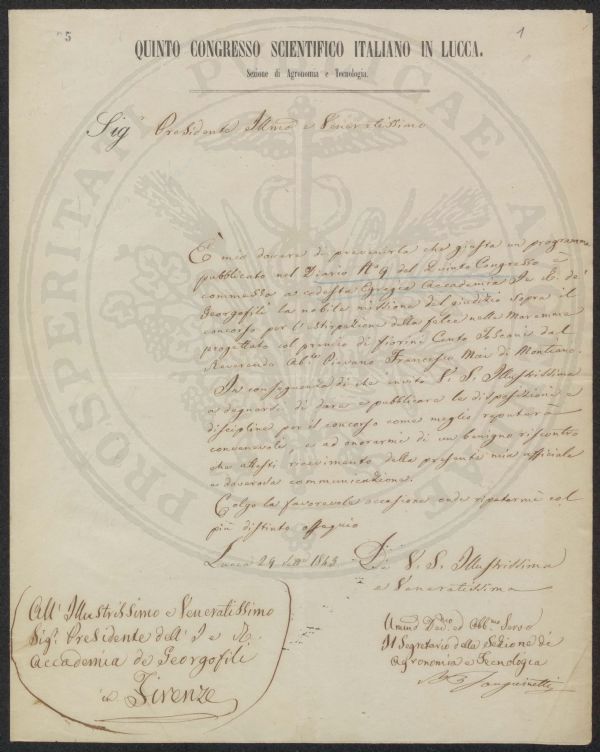 5
1
QUINTO CONGRESSO SCIENTIFICO ITALIANO IN LUCCA.
Sezione di Agronomia e Tecnologia.
Sigr Presidente Illmo e Veneratissimo
È mio dovere di prevenirla che giusta un programma
pubblicato nel Diario No 9 del Quinto Congresso è
commessa a codesta Egregia Accademia I. e R. de'
Georgofili la nobile missione del giudizio sopra il
concorso per l'estirpazione della felce nella Maremma
progettato col premio di fiorini Cento Toscani dal
Reverendo Pievano Francesco di
In conseguenza di che invito V. S. Illustrissima
a degnarsi di dare e pubblicare le disposizioni e
discipline per il concorso come meglio reputerà
convenevole, e ad onorarmi di un benigno riscontro
che attesti ricevimento della presente mia ufficiale
e doverosa comunicazione.
Colgo la favorevole occasione onde ripetermi col
più distinto ossequio
Lucca 29 1843. Di V. S. Illustrissima
e Veneratissima
Servo
Il Segretario della Sezione di
Agronomia e Tecnologia
Sanguinetti
All' Illustrissimo e Veneratissimo
Sigr Presidente dell' I e R.
Accademia de Georgofili
in
Firenze
PROSPERITATI PUBLICAE